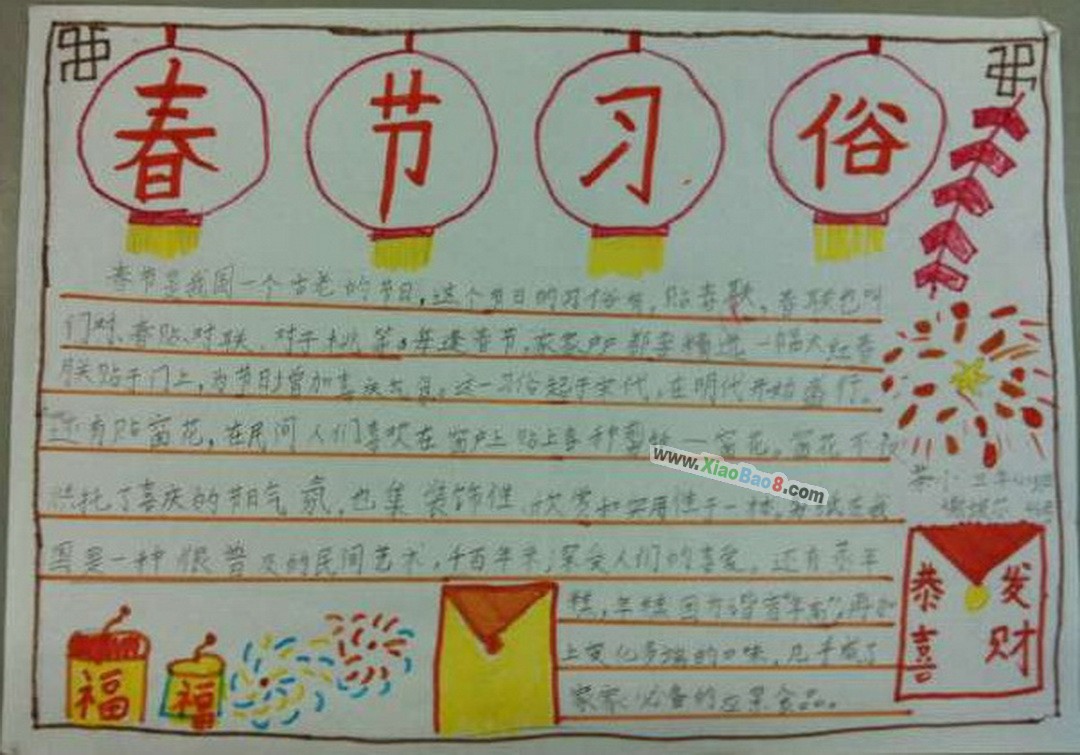 春节习俗
春节是我国一个古老的节日,这个节日的习俗有,贴春联,春联也叫
门对、春贴、对联、对子、桃符等,每逢春节,家家户户都要精选一幅大红春
联贴于门上,为节日增加喜庆气氛。这一习俗起于宋代,在明代开始盛行。
还有贴窗花,在民间人们喜欢在窗户上贴上各种剪纸一窗花。窗花不仅
烘托了喜庆的节日气氛,也集装饰性欣赏和实用性于一体,剪纸在我
国是一种很普及的民间艺术,千百年来,深受人们的喜爱。还有蒸年
糕,年糕因为谐音"年高",再加
上变化多端的口味,几乎成了
家家必备的应景食品。
www.XiaoBao8.com
恭喜
发财
福
福